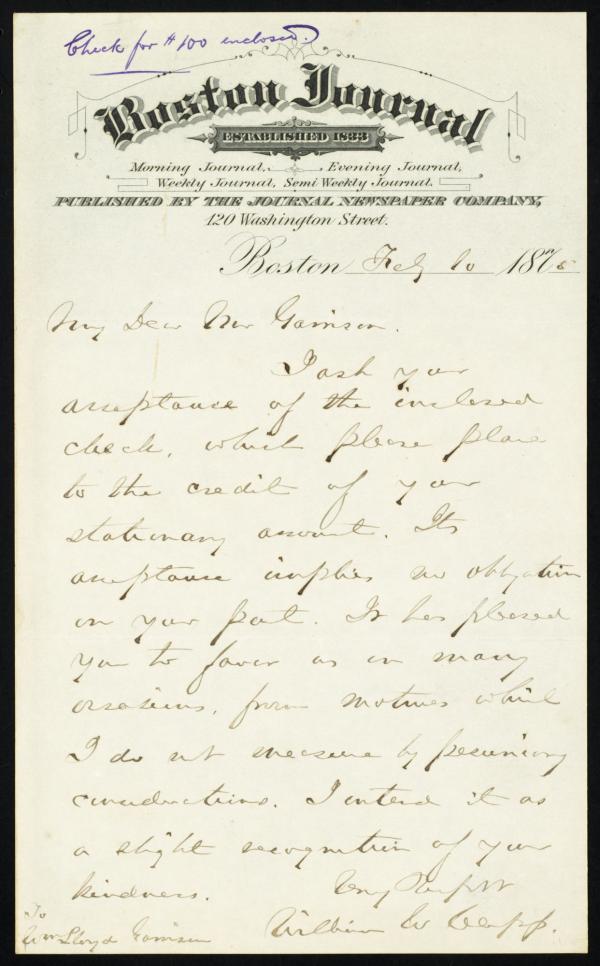 Check for $100 enclosed.
Boston Journal
ESTABLISHED 1833
Morning Journal, Evening Journal,
Weekly Journal, Semi Weekly Journal.
PUBLISHED BY THE JOURNAL NEWSPAPER COMPANY,
120 Washington Street.
Boston Feby 10 1875
My Dear Mr Garrison.
I ask your
acceptance of the inclosed
check, which please place
to the credit of your
stationary account. Its
acceptance implies no obligation
on your part. It has pleased
you to favor us on many
occasions, from motives which
I do not measure by pecuniary
considerations. I intend it as
a slight recognition of your
kindness.
Very
William W Clapp.
To
Wm Lloyd Garrison